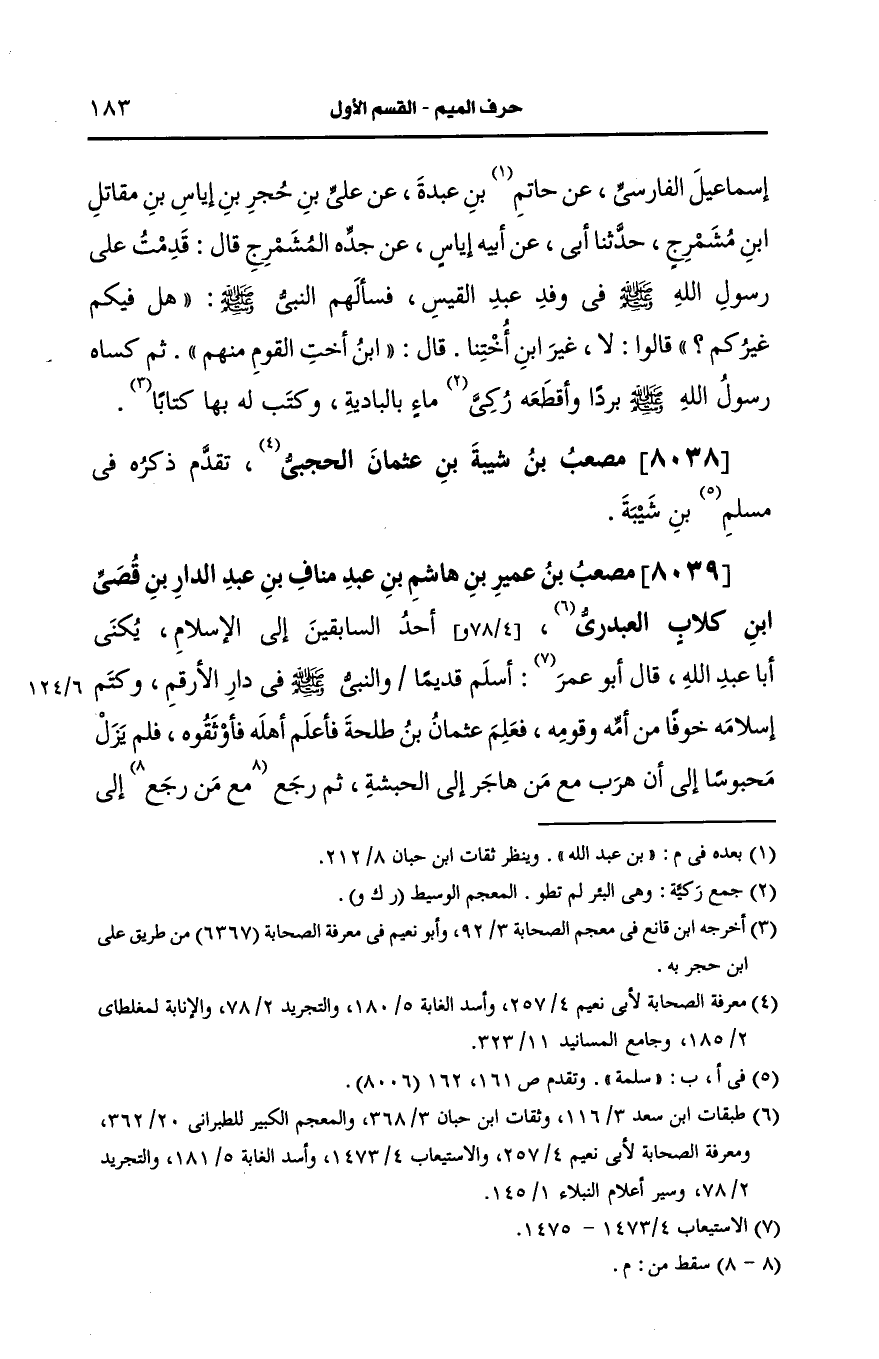 حرف الميم - القسم الأول ١٨٣
إسماعيلَ الفارسىِّ ، عن حاتمِ(١) بنِ عبدةَ ، عن علىِّ بنِ حُجرِ بنِ إياسِ بنِ مقاتلِ
ابنِ مُشَمْرِجٍ ، حدَّثنا أبى ، عن أبيه إياسٍ ، عن جدِّه المُشَمْرِجِ قال : قَدِمْتُ على
رسولِ اللهِ ﷺ فى وفدِ عبدِ القيسِ ، فسألَهم النبىُّ ﷺ : « هل فيكم
غيرُكم ؟ » قالوا : لا ، غيرَ ابنِ أُخْتِنا . قال : « ابنُ أختِ القومِ منهم » . ثم كساه
رسولُ اللهِ ﷺ بردًا وأقطَعَه رُكِىَّ(٢) ماءٍ بالباديةِ ، وكتَب له بها كتابًا(٣) .
[٨٠٣٨] مصعبُ بنُ شيبةَ بنِ عثمانَ الحجبىُّ(٤) ، تقدَّم ذكرُه فى
مسلمِ(٥) بنِ شَيْبَةَ .
[٨٠٣٩] مصعبُ بنُ عميرِ بنِ هاشمِ بنِ عبدِ منافِ بنِ عبدِ الدارِ بنِ قُصَىِّ
ابنِ كلابٍ العبدرىُّ(٦) ، [٧٨/٤و] أحدُ السابقينَ إلى الإسلامِ ، يُكنَى
أبا عبدِ اللهِ ، قال أبو عمرَ(٧) : أسلَم قديمًا / والنبىُّ ﷺ فى دارِ الأرقمِ ، وكتَم ١٢٤/٦
إسلامَه خوفًا من أمِّه وقومِه ، فعَلِمَ عثمانُ بنُ طلحةَ فأعلَم أهلَه فأوْثَقُوه ، فلم يَزَلْ
مَحبوسًا إلى أن هرَب مع مَن هاجَر إلى الحبشةِ ، ثم رجَع (٨مع مَن رجَع٨) إلى
(١) بعده فى م : « بن عبد الله » . وينظر ثقات ابن حبان ٨/ ٢١٢.
(٢) جمع رَكيَّة : وهى البئر لم تطو . المعجم الوسيط (ر ك و) .
(٣) أخرجه ابن قانع فى معجم الصحابة ٣/ ٩٢، وأبو نعيم فى معرفة الصحابة (٦٣٦٧) من طريق على
ابن حجر به .
(٤) معرفة الصحابة لأبى نعيم ٤/ ٢٥٧، وأسد الغابة ٥/ ١٨٠، والتجريد ٢/ ٧٨، والإنابة لمغلطاى
٢/ ١٨٥، وجامع المسانيد ١١/ ٣٢٣.
(٥) فى أ ، ب : « سلمة » . وتقدم ص ١٦١، ١٦٢ (٨٠٠٦) .
(٦) طبقات ابن سعد ٣/ ١١٦، وثقات ابن حبان ٣/ ٣٦٨، والمعجم الكبير للطبرانى ٢٠/ ٣٦٢،
ومعرفة الصحابة لأبى نعيم ٤/ ٢٥٧، والاستيعاب ٤/ ١٤٧٣، وأسد الغابة ٥/ ١٨١، والتجريد
٢/ ٧٨، وسير أعلام النبلاء ١/ ١٤٥.
(٧) الاستيعاب ١٤٧٣/٤ - ١٤٧٥.
(٨ - ٨) سقط من : م .